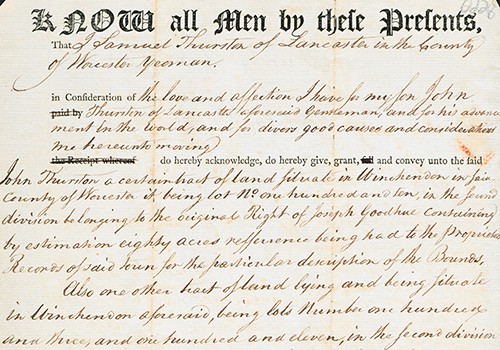 KNOW all Men by these Presents,
That I Samuel Thurston of Lancaster in the County
of Worcester Yeoman.
in Consideration of the love and affection I have for my son John
paid by Thurston of Lancaster aforesaid Gentleman, and for his advance
ment in the world, and for divers good causes and considerations
me hereunto moving
the Receipt whereof do hereby acknowledge, do hereby give, grant, sell and convey unto the said
John Thurston a certain tract of land situate in Winchendon in said
County of Worcester it being lot No one hundred and ten, in the second
division belonging to the original Right of Joseph Goodhue containing
by estimation eighty acres refference being had to the Proprietors
Records of said town for the particular description of the Bounds,
Also one other tract of land lying and being situate
in Winchendon aforesaid, being lots Number one hundred
and three, and one hundred and eleven, in the second division